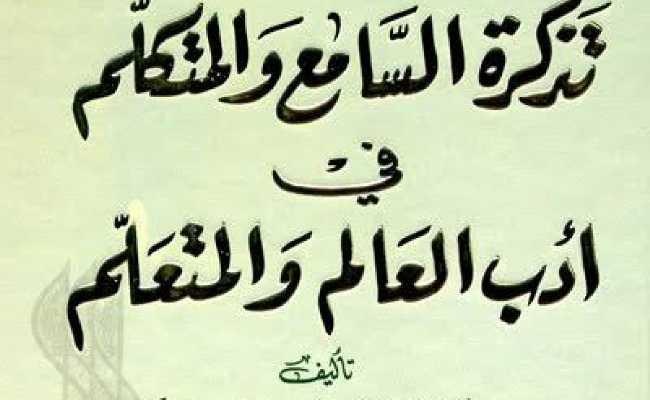 تَذكرة السَّامع وَالمتكلّم
في
أدب العَالم وَالمتعَلّم
تأليف